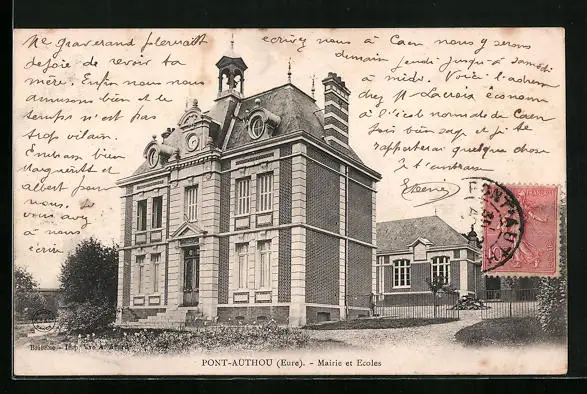 Mme graverand pleurait
de joie de revoir ta
mère. Enfin nous nous
amusons bien et le
temps n'est pas
trop vilain.
Embrasse bien
Marguerite et
albert pour
nous.
vous avez
à nous
écrire
écrivez nous à Caen nous y serons
demain jeudi jusqu'à samedi
à midi. Voici l'adresse
chez M. Lacroix économe
à l'école normale de Caen
Sois bien sage et je te
rapporterai quelque chose
Je t'embrasse
PONT-AUTHOU
PONT-AUTHOU (Eure). - Mairie et Ecoles